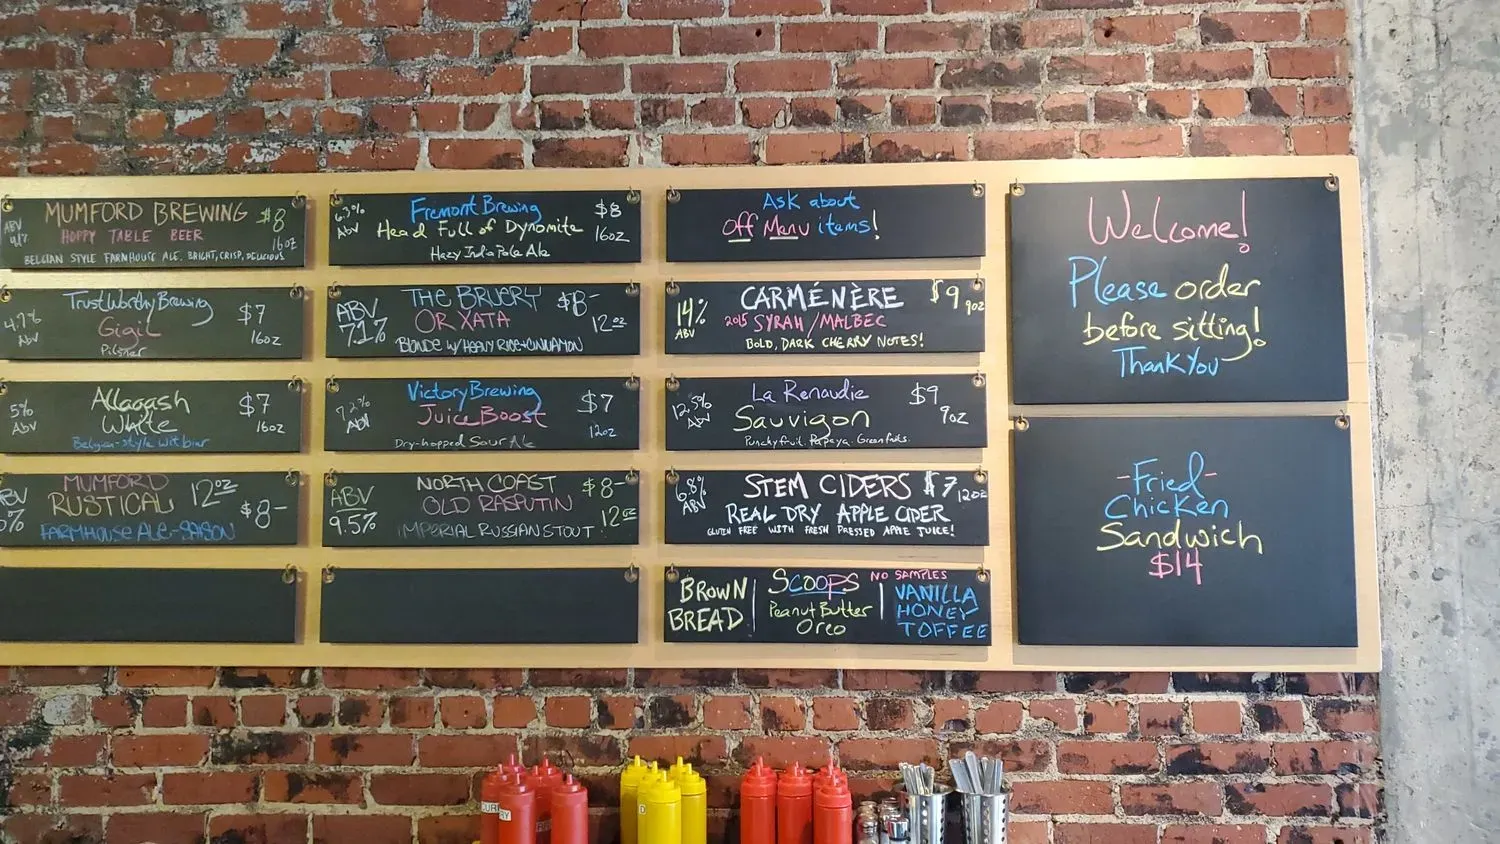 MUMFORD BREWING $8
HOPPY TABLE BEER
ABV
16oz
BELGIAN STYLE FARMHOUSE ALE. BRIGHT, CRISP, DELICIOUS
TrustWorthy Brewing $7
Gigil
4.7%
ABV
16oz
Pilsner
Allagash $7
White
5%
ABV
16oz
Belgian-style Witbier
MUMFORD 12oz
RUSTICAL $8-
FARMHOUSE ALE-SAISON
Fremont Brewing $8
6.3%
ABV
Head Full of Dynomite 16oz
Hazy India Pale Ale
THE BRUERY $8-
ABV
7.1%
OR XATA 12oz
BLONDE W/ HEAVY RICE + CINNAMON
Victory Brewing $7
7.2%
ABV
Juice Boost 12oz
Dry-hopped Sour Ale
NORTH COAST $8-
ABV
9.5%
OLD RASPUTIN 12oz
IMPERIAL RUSSIAN STOUT
Ask about
Off Menu items!
CARMÉNÈRE $9 9oz
14%
ABV
2015 SYRAH/MALBEC
BOLD, DARK CHERRY NOTES!
La Renaudie $9
12.5%
ABV
Sauvigon 9oz
Punchy fruit. Papaya. Green fruits.
STEM CIDERS $7 12oz
6.8%
ABV
REAL DRY APPLE CIDER
GLUTEN FREE WITH FRESH PRESSED APPLE JUICE!
BROWN
BREAD
SCOOPS NO SAMPLES
Peanut Butter
Oreo
VANILLA
HONEY
TOFFEE
Welcome!
Please order
before sitting!
Thank You
-Fried-
Chicken
Sandwich
$14
CURRY